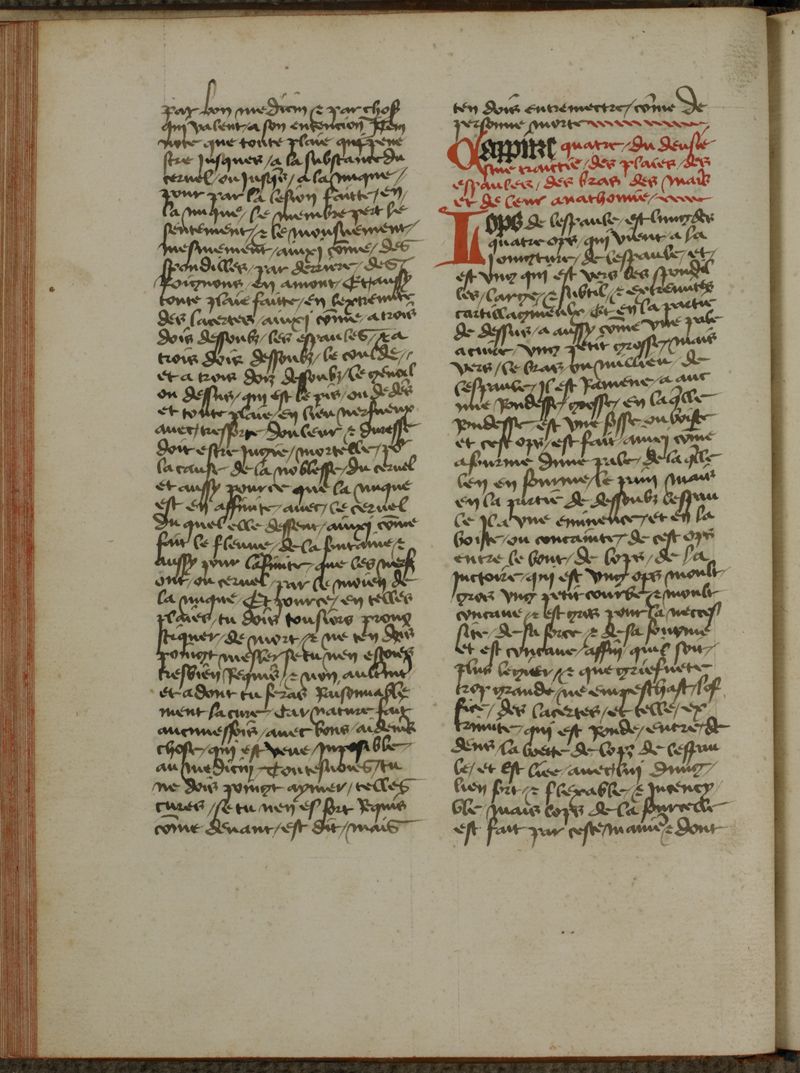 par bon medicin ⁊ par chose
qui valent / a son entencion Item
note que toute plaie qui pene
stre jusques / a la substance du
cervel / ou jusq̃s / a la nuque /
pour par la lesion faitte / en /
la nuque / le membre pert le
sentement / ⁊ le mouvement /
mesmement / ainxi cõme / des
spondilles / par derriere / des /
Roignons / en amont / Et aussy
toute plaie faitte / en lextremite
des lacertes / ainxi cõme / a trois
dois dessoubz / les espaules / ⁊ a
trois dois dessoubz / le coulde /
et a trois dois dessoubz / le genoil
ou dessus / qui est le pis / ou dedẽs
et toute plaie / en lieu nerveux
avec / tresforte douleur / ⁊ duresse
doit estre jugie / mortelle / po͛
la cause / de la noblesse / du cervel
et aussy pource que la nuque
est en affinite / avec / le cervel
du quel elle dessent / ainxi cõme
fait le fleuve / de la fontaine / ⁊
aussy pour lafinite / que les nerfs
ont / ou cervel / par le moien de
la nuque / Et pource / en telles
plaies / tu dois tousiors prono
stiquer / de mort / ⁊ ne ten dois
poingt mesler / se tu nen estoies
tresbien Requis / ⁊ non aultremẽt
et adont tu feras Raisonnable
ment la cure Car nature fait
aucuneffois / avec bons aidens
chose / qui est veue / Imposible
au medicin Toutesvoies / tu
ne dois poingt aymer / telles
cures / se tu nen es fort Requis
cõme devant / est dit / mais
ten dois entremectre / cõme de
personne morte
Capitre quatre / du deusie
sme traictie / des plaies / des
espaules / des bras des mais
et de leur anathomie /
Lops de lespaule / est lung des
quatre ops / qui vient a la
joingture / de lespaule / et /
est ung qui est vers les spondil
les / large / ⁊ subtil / ⁊ extremites
cartillagineulx Et en la partie
de dessus / a aussy cõme une pale
acuite / ung petit grosse / mais
vers / le bras / ou millieu / de
lespaule / Il est Ramene / a auc
une Rondesse / grosse / en la q̃lle
Rondesse / est une fosse / ou boiste
et cest ops / est fait / ainxi cõme
a fourme dune pale / de la q̃lle
len en fourne / le pain mais
en la partie de dessoubz lespau
le Il a une eminence / et en la
boiste / ou concavite / de cest ops
entre le bout / de lops / de la
juctoire / qui est ung ops moult
gros ung petit courbe / ⁊ moult
concave / ⁊ est gros pour la necces
site / de sa force / ⁊ de sa fourme
et est concave / affin quil soit /
plus legier / ⁊ que griefvete
trop grande / ne empeschast / lof
fice / des lacertes / et telle / ex
tremite / qui est Ronde / entre / de
dens / la boete / de lops de lespau
le / et est liee / avec / lui dung /
lien fort / ⁊ flexable / ⁊ Intency
ble mais lops de la fourcelle
est fait par ceste maniẽ ⁊ dont